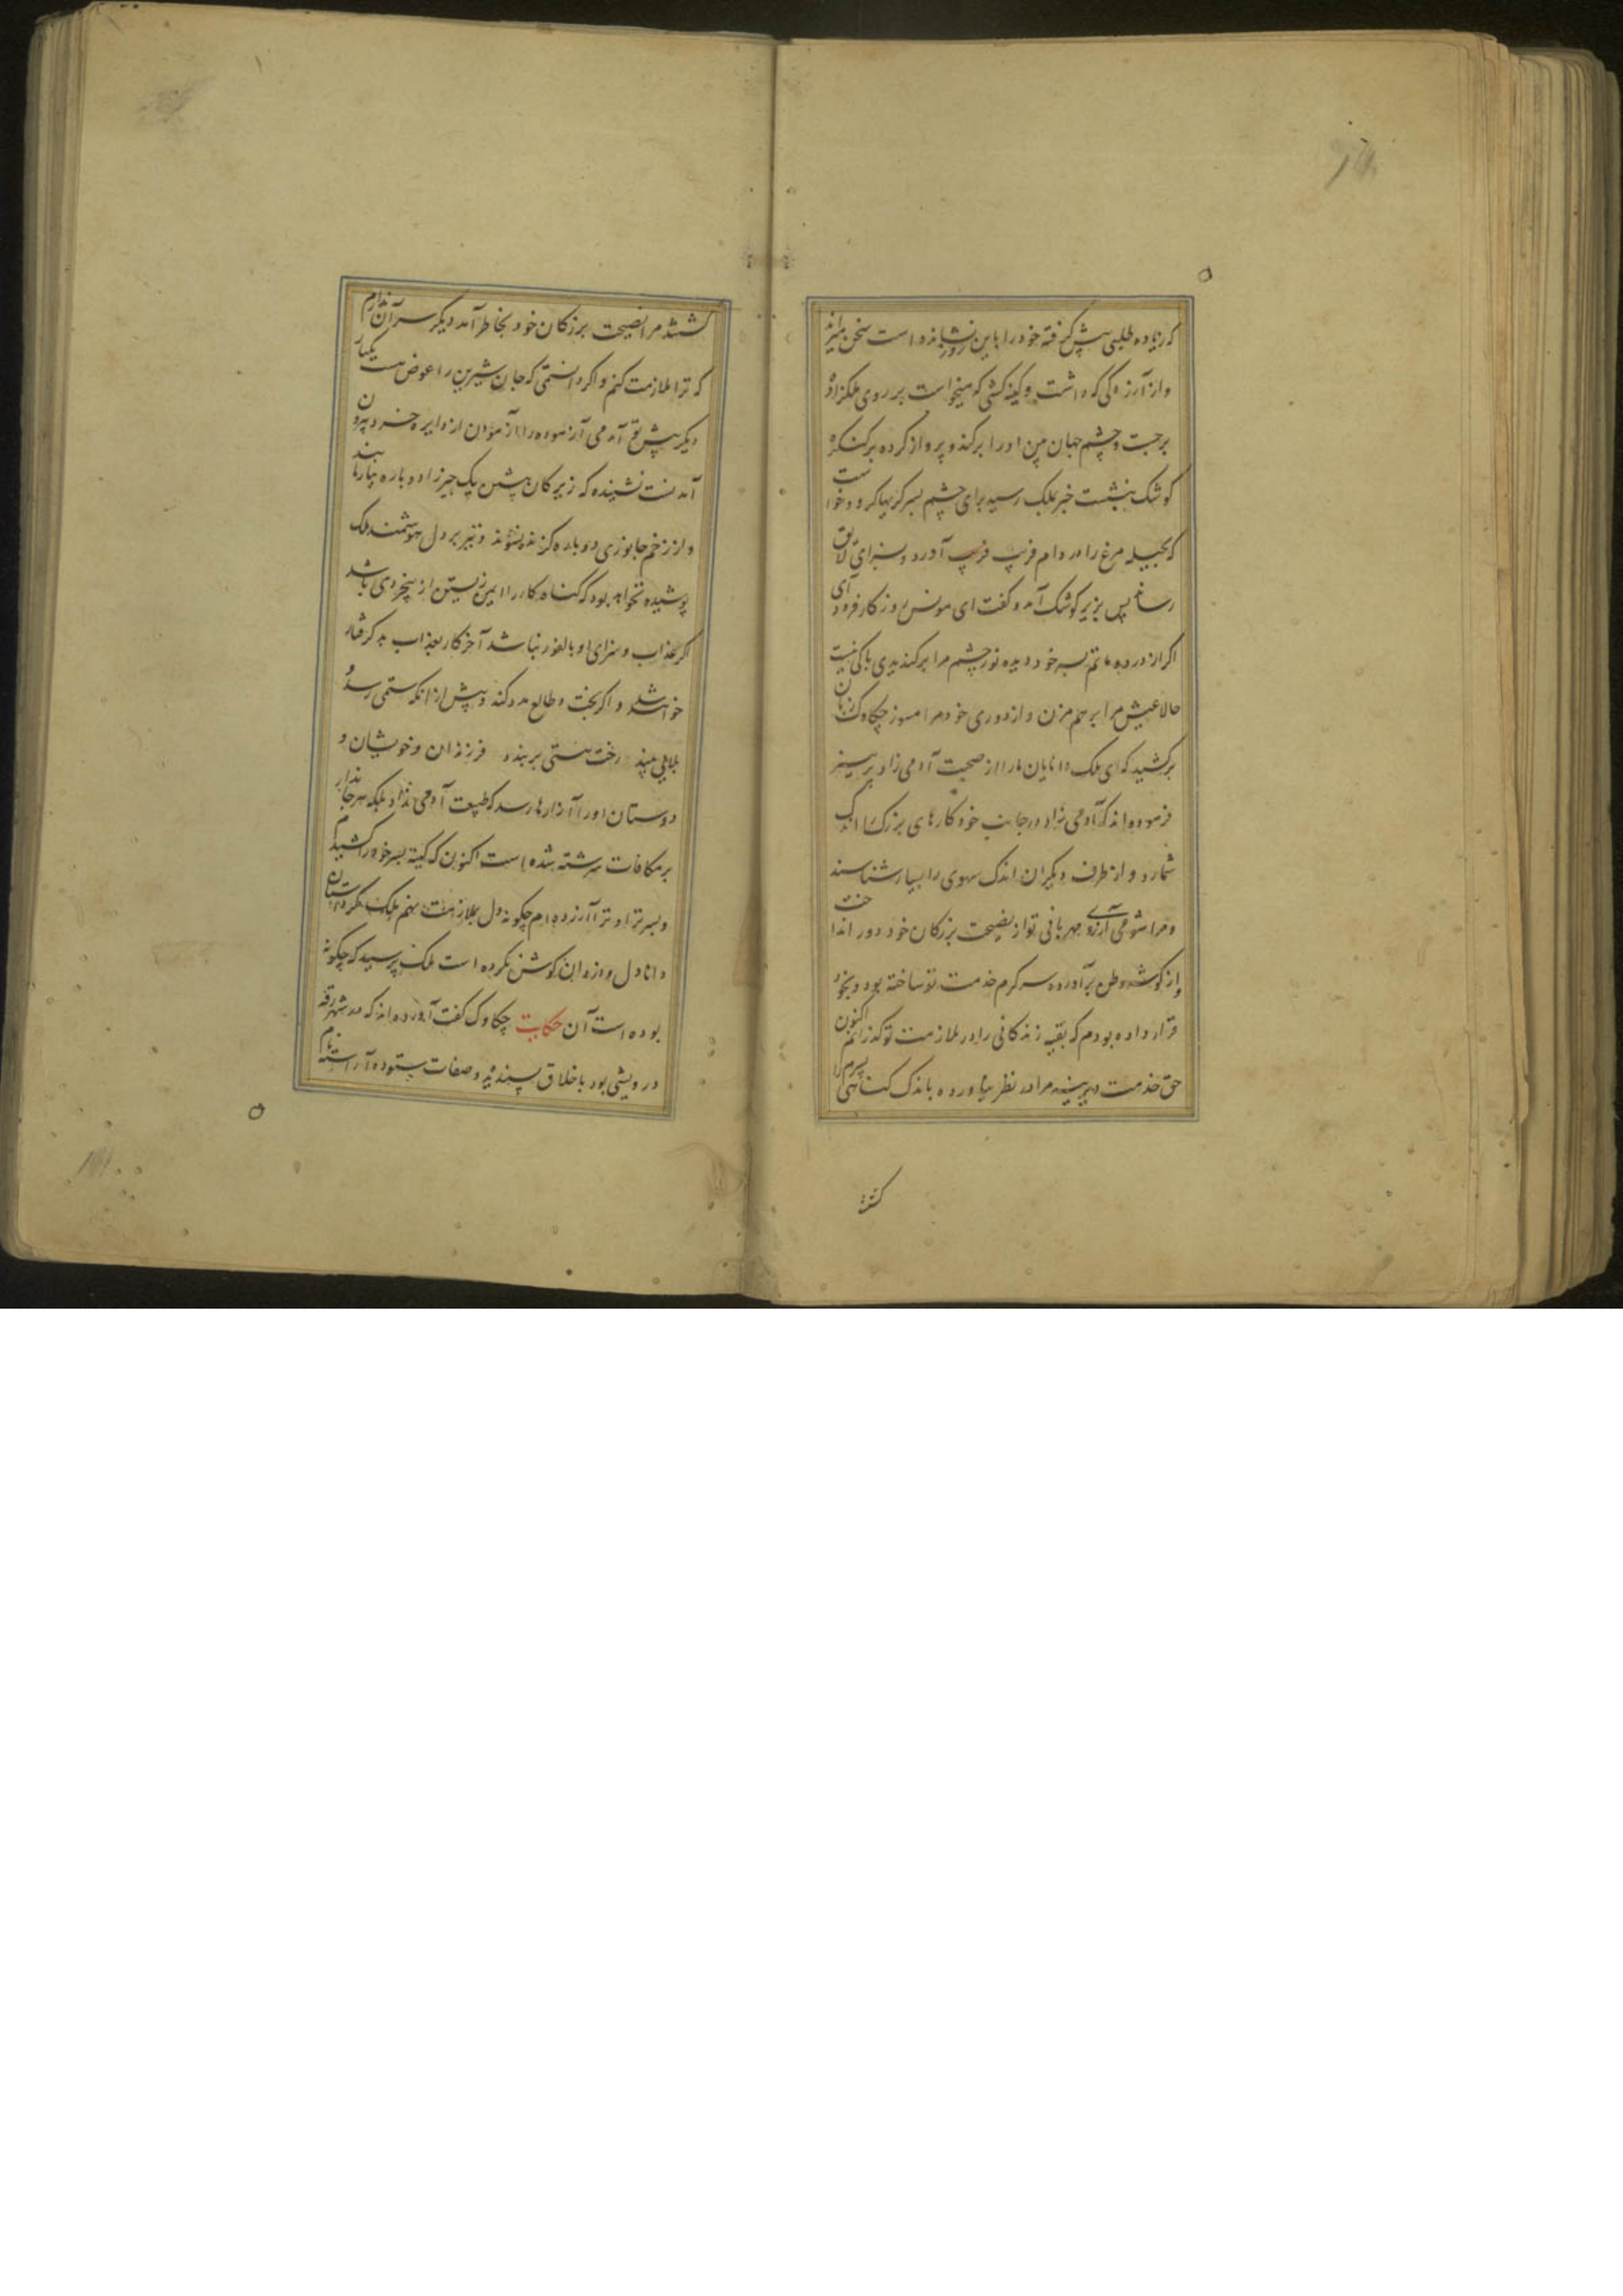 که زیاده طلبی پیش گرفته خود را باین روز نشانده است سخن میراند
و از آزردگی که داشت و کینه کشی که میخواست بر روی ملکزاده
برجست و چشم جهان بین او را برکند و پرواز کرده بر کنکره
کوشک بنشست خبر بملک رسید برای چشم پسر گریها کرد و خواست
که بحیله مرغ را در دام فریب آورد و بسزای لایق
رساند پس بزیر کوشک آمد و گفت ای مونس روزکار فرود آی
اکر از درد ماتم پسر خود دیده نور چشم مرا برکندیدی باکی نیست
حالا عیش مرا برهم مزن و از دوری خود مرا مسوز چکاوک زبان
برکشید که ای ملک دانایان ما را از صحبت آدمی زاد پرهیز
فرموده اند که آدمی نژاد در جانب خود کارهای بزرک را اندک
شمارد و از طرف دیگران اندک سهوی را بسیار شناسند
و مرا شومی آرزوی مهربانی تو از نصیحت بزرکان خود دور انداخت
و از کوشه وطن برآورده سرکرم خدمت تو ساخته بود و بخود
قرار داده بودم که بقیه زندکانی را در ملازمت تو کذرانم اکنون
حق خدمت دیرینه مرا در نظر نیاورده باندک کناهی پسرم را
کشتند
کشتند مرا نصیحت بزرکان خود بخاطر آمد دیکر سر آن ندارم
که ترا ملازمت کنم و اکر دانستمی که جان شیرین را عوض هست یکبار
دیکر پیش تو آمدمی آزموده را آزمودن از دایره خرد بیرون
آمدنست نشنیده که زیرکان پیشین یک چیز را دوباره نیازمایند
و از زخم جانوری دوباره کزنده نشوند و نیز بر دل هوشمند ملک
پوشیده نخواهد بود که کناه کار را ایمن زیستن از بیخردی باشد
اکر عذاب و سزای او بالفور نباشد آخر کار بعذاب بد کرفتار
خواهد شد و اکر بخت و طالع مدد کند و پیش از آنکه ستمی رسد و
بلایی بیند رخت هستی بربندد فرزندان و خویشان و
دوستان او را آزارها رسد که طبیعت آدمی نژاد بلکه هر جاندار
بر مکافات سرشته شده است اکنون که کینه پسر خود را کشیدم
و پسر ترا و ترا آزرده ام چکونه دل بملازمت نهم ملک مکر داستان
دانادل و دزدان کوش نکرده است ملک پرسید که چکونه
بوده است آن حکایت چکاوک گفت آورده اند که در شهر رقه
درویشی بود باخلاق پسندیده و صفات ستوده آراسته نام